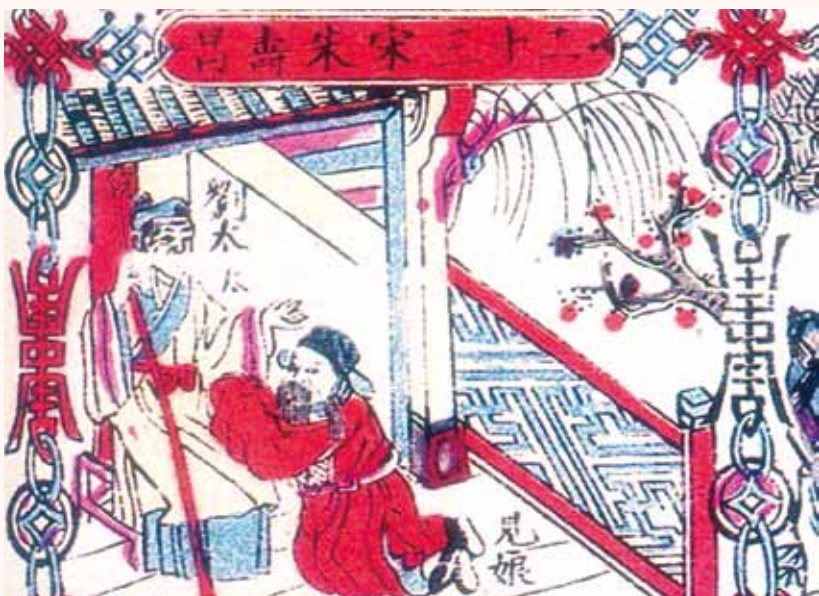 二十三宋朱壽昌
劉太太
見娘